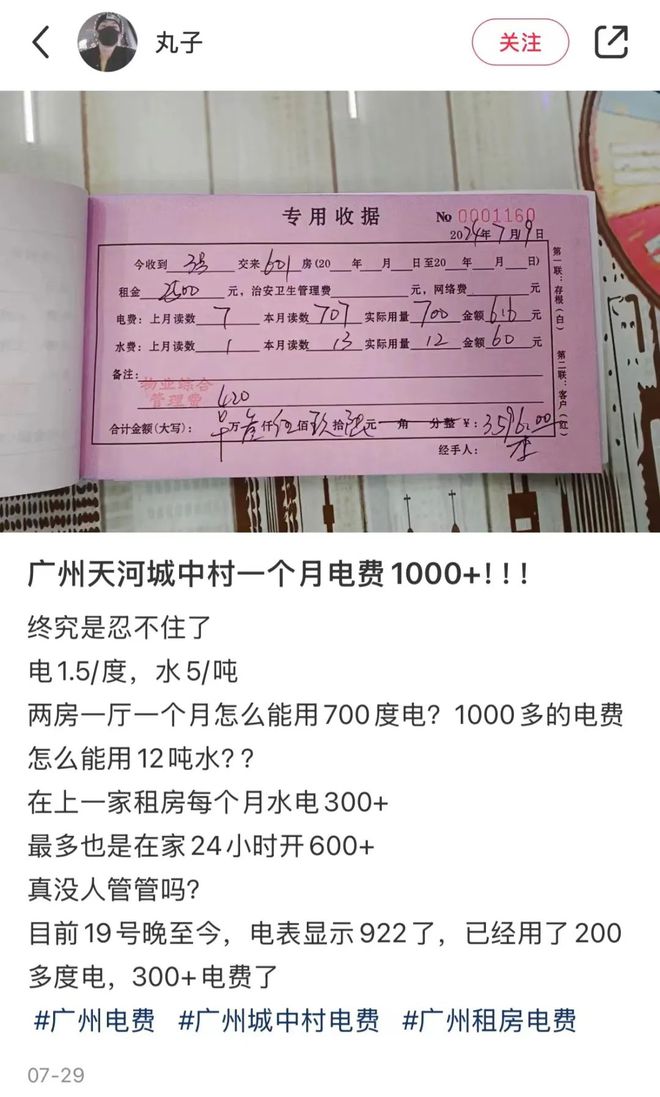 丸子
关注
专用收据
No 0001160
2024年7月19日
今收到 交来601房(20 年 月 日至20 年 月 日)
租金 2500 元,治安卫生管理费 元,网络费 元
电费:上月读数 7 本月读数 707 实际用量 700 金额 616 元
水费:上月读数 1 本月读数 13 实际用量 12 金额 60 元
备注:
物业综合
管理费 420
合计金额(大写): 万 仟 佰 拾 元 角 分整 ¥:3596.00
经手人:
第一联:存根(白)
第二联:客户(红)
广州天河城中村一个月电费1000+!!!
终究是忍不住了
电1.5/度,水5/吨
两房一厅一个月怎么能用700度电?1000多的电费
怎么能用12吨水??
在上一家租房每个月水电300+
最多也是在家24小时开600+
真没人管管吗?
目前19号晚至今,电表显示922了,已经用了200
多度电,300+电费了
#广州电费 #广州城中村电费 #广州租房电费
07-29